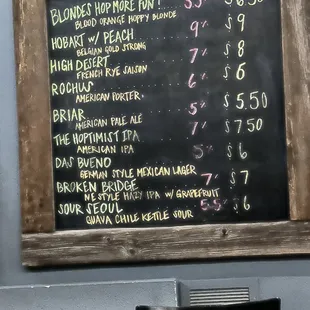 BLONDES HOP MORE FUN! 5.5% $6.50
BLOOD ORANGE HOPPY BLONDE
HOBART W/ PEACH 9% $9
BELGIAN GOLD STRONG
HIGH DESERT 7% $8
FRENCH RYE SAISON
ROCHUS 6% $6
AMERICAN PORTER
BRIAR 5% $5.50
AMERICAN PALE ALE
THE HOPTIMIST IPA 7% $7.50
AMERICAN IPA
DAS BUENO 5% $6
GERMAN STYLE MEXICAN LAGER
BROKEN BRIDGE 7% $7
NE STYLE HAZY IPA W/ GRAPEFRUIT
SOUR SEOUL 5.5% $6
GUAVA CHILE KETTLE SOUR